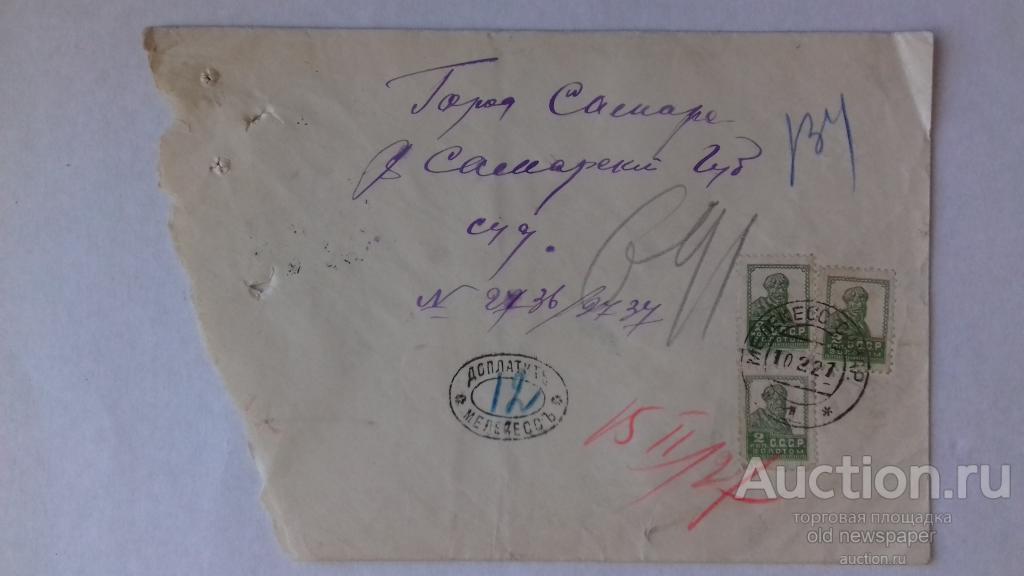 Город Самара
В Самарский Губ
суд.
№ 2736/2737
ДОПЛАТИТЬ
12
МЕЛЕКЕССЪ
МЕЛЕКЕСС САМАР.
10 2 27
СССР
ЗОЛОТОМ
2 КОП. СССР
ЗОЛОТОМ
15 II/27
Auction.ru
торговая площадка
old newspaper
auction.ru